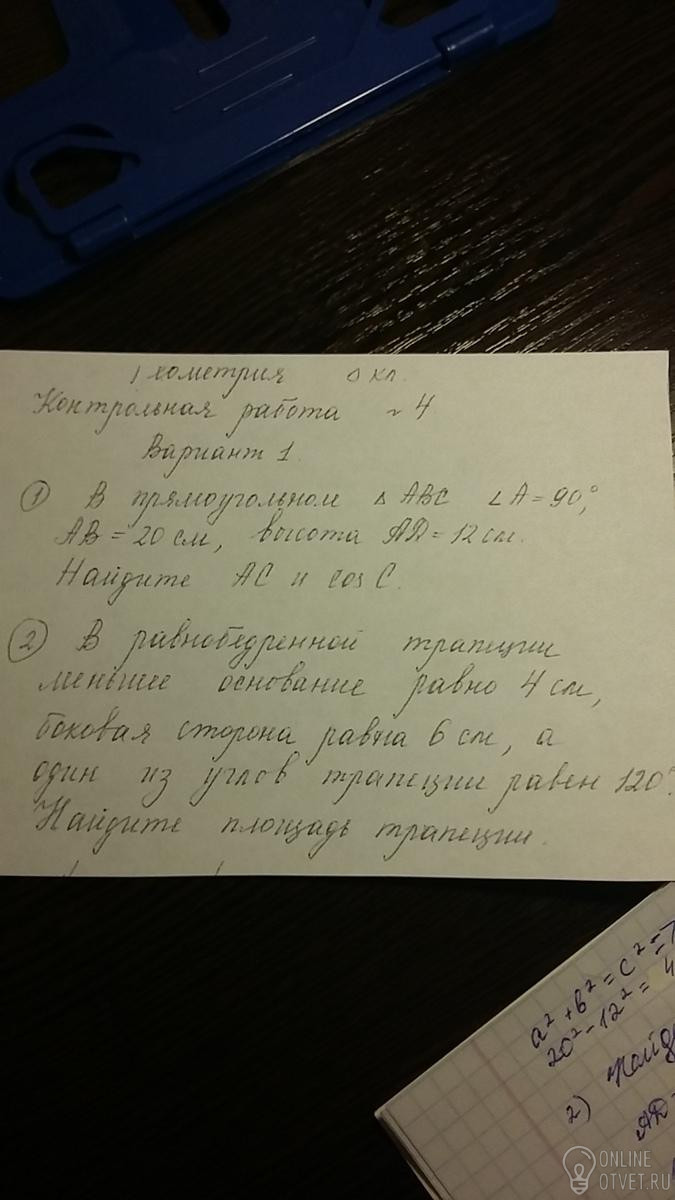 Геометрия кл.
Контрольная работа ~ 4
Вариант 1.
① В прямоугольном △ ABC ∠A = 90°,
AB = 20 см, высота AD = 12 см.
Найдите AC и cos C.
② В равнобедренной трапеции
меньшее основание равно 4 см,
боковая сторона равна 6 см, а
один из углов трапеции равен 120°.
Найдите площадь трапеции.
a² + b² = c² =
20² - 12² = 4
2) Найд
AD
ONLINE
OTVET.RU